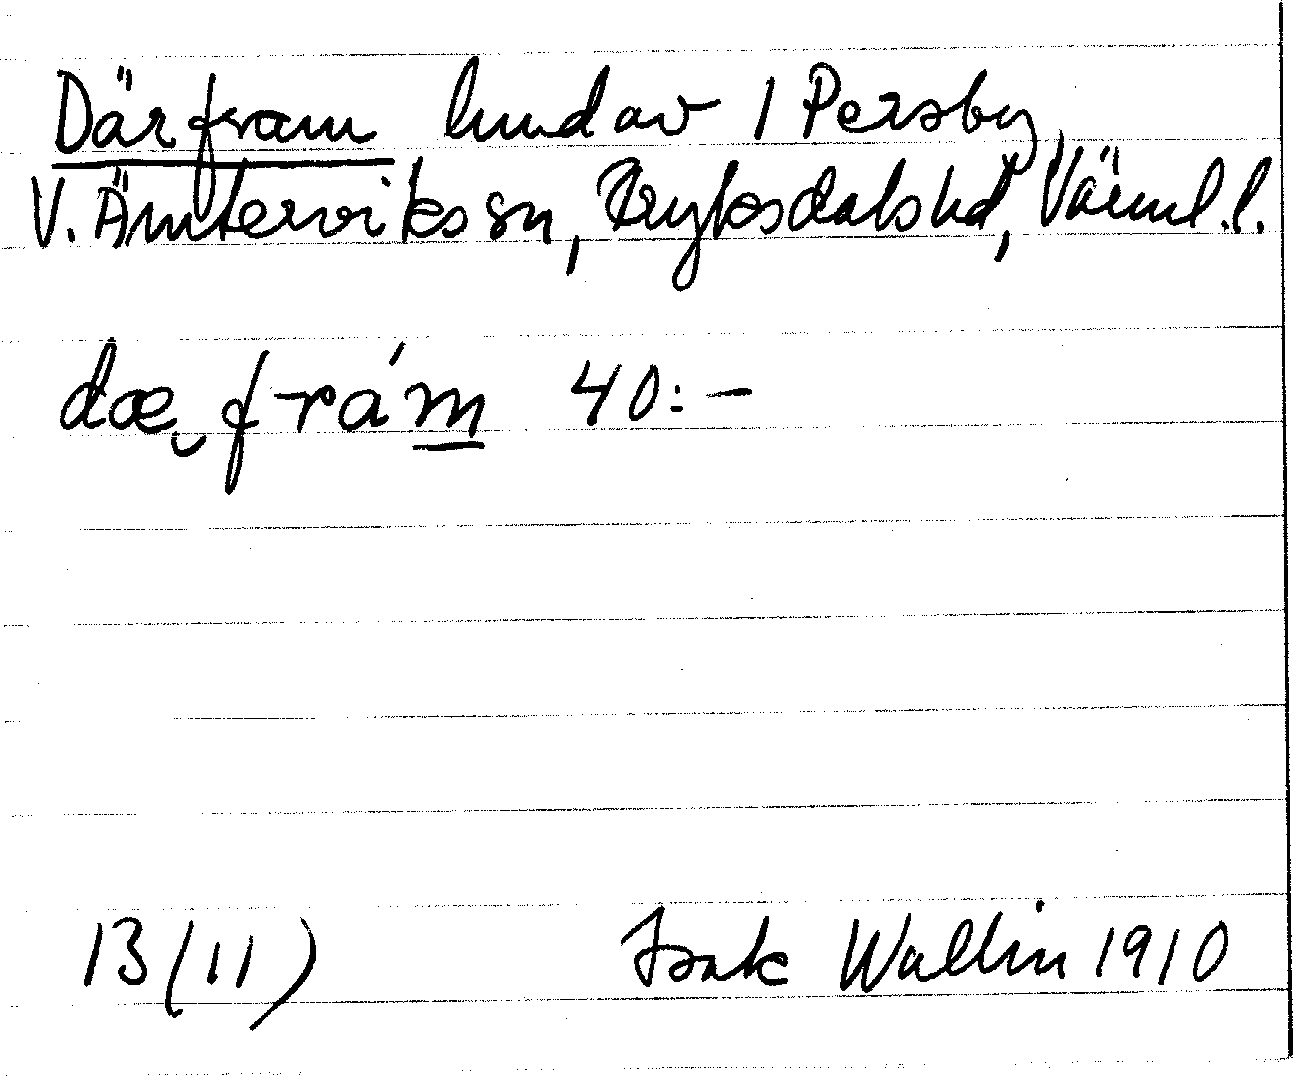 Därfram hmd av 1 Persby,
V. Ämterviks sn, Fryksdals hd, Värml. l.
dæ̮ frá m 40:-
13 (11) Isak Wallin 1910